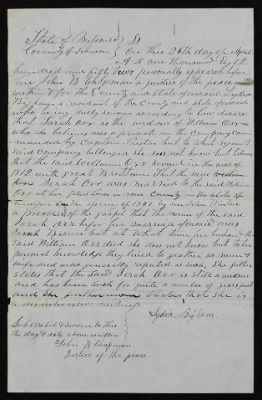 State of Missouri } SS
County of Johnson } On this 26th day of April
A D one thousand Eight
hundred and fifty two personally appeared before
me John B Chapman a justice of the peace
within & for the County and state aforesaid Lydia
Bigham a resident of the County and state aforesaid
who being duly sworn according to law declares
that Sarah Orr is the widow of William Orr
who she believes was a private in the company com
manded by Captain but to what regiment
said company belonged she does not know but I know
that the said William Orr served in the war of
1812 with great Brittain that the said
Sarah Orr was married to the said William
Orr at her fathers in County in the state of
in spring of 1801 by one John
a preacher of the gospel that the name of the said
Sarah Orr before her marriage aforesaid was
Sarah and at the time her husband the
said William Orr died she does not know but to her
personal knowledge they lived together as man &
wife and was generally reputed as such. She further
states that the said Sarah Orr is still a widow
and has been such for quite a number of years past
and she furthermore states that she is
disinterested
Lydia Bigham.
Subscribed & sworn to this
the day & date above written
John B Chapman
Justice of the peace